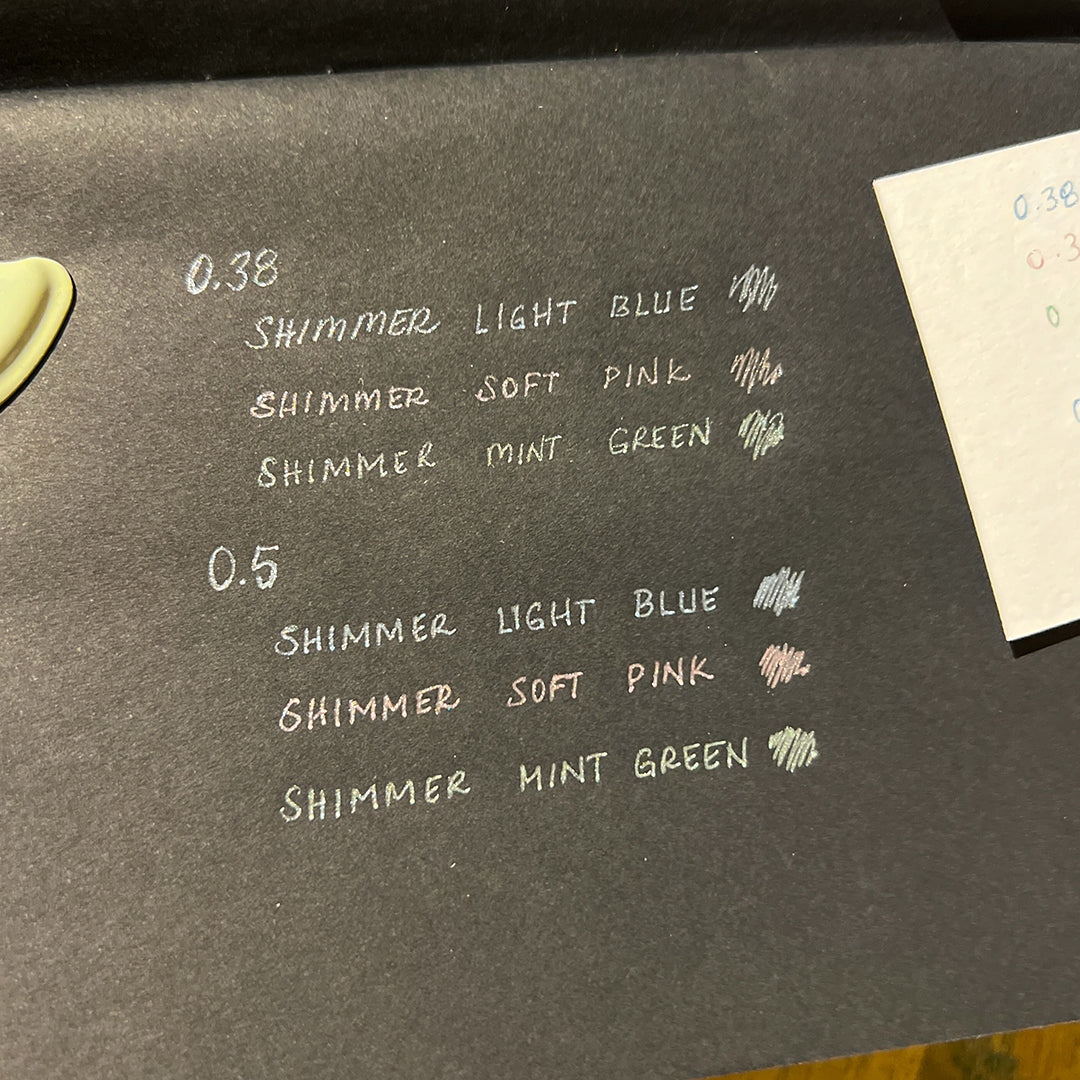 0.38
SHIMMER LIGHT BLUE
SHIMMER SOFT PINK
SHIMMER MINT GREEN
0.5
SHIMMER LIGHT BLUE
SHIMMER SOFT PINK
SHIMMER MINT GREEN
0.38
0.3
0